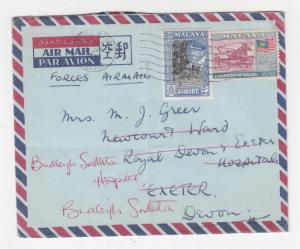 AIR MAIL
PAR AVION
空郵
FORCES AIRMAIL
MALAYA
JOHORE
MALAYA
FEDERATION OF MALAYA
Mrs. M. J. Greer
Newcourt Ward
Royal Devon & Exeter
Hospital
Budleigh Salterton
Hospital
EXETER.
Budleigh Salterton
Devon.